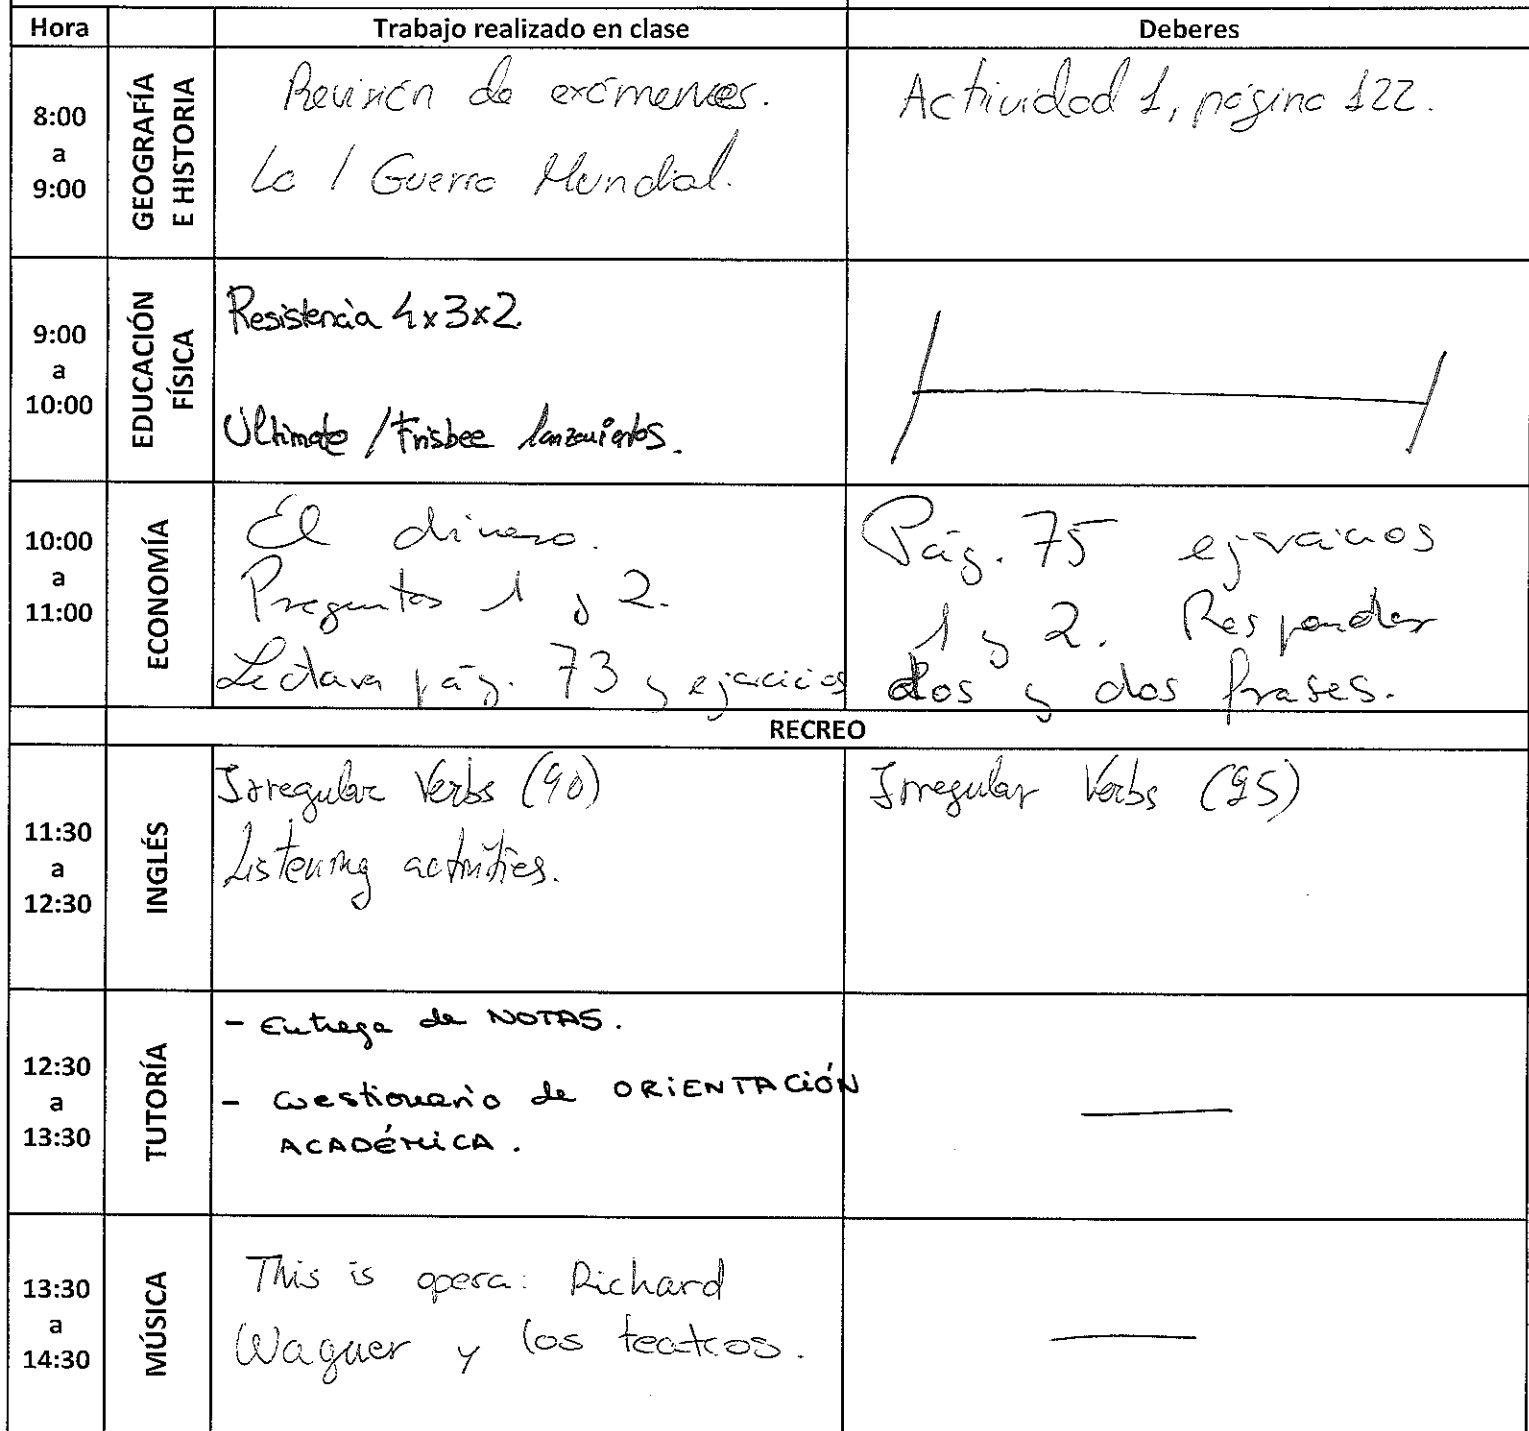 Hora Trabajo realizado en clase Deberes
8:00 a 9:00
GEOGRAFÍA E HISTORIA
Revisión de exámenes.
La I Guerra Mundial.
Actividad 1, página 122.
9:00 a 10:00
EDUCACIÓN FÍSICA
Resistencia 4x3x2.
Ultimate / Frisbee lanzamientos.
10:00 a 11:00
ECONOMÍA
El dinero.
Preguntas 1 y 2.
Lectura pág. 73 y ejercicios
Pág. 75 ejercicios
1 y 2. Responder
dos y dos frases.
RECREO
11:30 a 12:30
INGLÉS
Irregular Verbs (90)
Listening activities.
Irregular Verbs (95)
12:30 a 13:30
TUTORÍA
- Entrega de NOTAS.
- Cuestionario de ORIENTACIÓN
ACADÉMICA.
13:30 a 14:30
MÚSICA
This is opera: Richard
Wagner y los teatros.